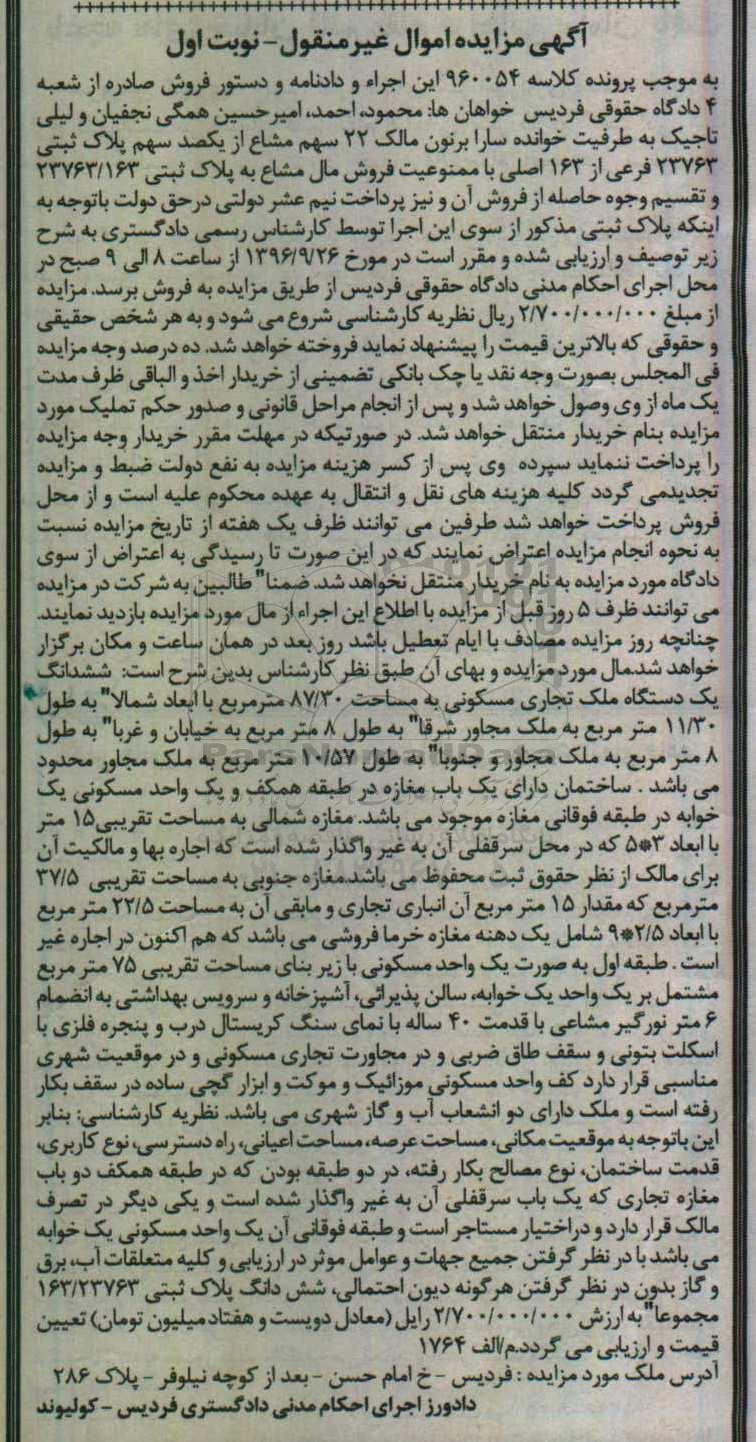 آگهی مزایده اموال غیرمنقول - نوبت اول
به موجب پرونده کلاسه ۹۶۰۰۵۴ این اجراء و دادنامه و دستور فروش صادره از شعبه
۴ دادگاه حقوقی فردیس خواهان ها: محمود، احمد، امیرحسین همگی نجفیان و لیلی
تاجیک به طرفیت خوانده سارا برنون مالک ۲۲ سهم مشاع از یکصد سهم پلاک ثبتی
۲۳۷۶۳ فرعی از ۱۶۳ اصلی با ممنوعیت فروش مال مشاع به پلاک ثبتی ۲۳۷۶۳/۱۶۳
و تقسیم وجوه حاصله از فروش آن و نیز پرداخت نیم عشر دولتی درحق دولت باتوجه به
اینکه پلاک ثبتی مذکور از سوی این اجرا توسط کارشناس رسمی دادگستری به شرح
زیر توصیف و ارزیابی شده و مقرر است در مورخ ۱۳۹۶/۹/۲۶ از ساعت ۸ الی ۹ صبح در
محل اجرای احکام مدنی دادگاه حقوقی فردیس از طریق مزایده به فروش برسد. مزایده
از مبلغ ۲/۷۰۰/۰۰۰/۰۰۰ ریال نظریه کارشناسی شروع می شود و به هر شخص حقیقی
و حقوقی که بالاترین قیمت را پیشنهاد نماید فروخته خواهد شد. ده درصد وجه مزایده
فی المجلس بصورت وجه نقد یا چک بانکی تضمینی از خریدار اخذ و الباقی ظرف مدت
یک ماه از وی وصول خواهد شد و پس از انجام مراحل قانونی و صدور حکم تملیک مورد
مزایده بنام خریدار منتقل خواهد شد. در صورتیکه در مهلت مقرر خریدار وجه مزایده
را پرداخت ننماید سپرده وی پس از کسر هزینه مزایده به نفع دولت ضبط و مزایده
تجدیدمی گردد کلیه هزینه های نقل و انتقال به عهده محکوم علیه است و از محل
فروش پرداخت خواهد شد طرفین می توانند ظرف یک هفته از تاریخ مزایده نسبت
به نحوه انجام مزایده اعتراض نمایند که در این صورت تا رسیدگی به اعتراض از سوی
دادگاه مورد مزایده به نام خریدار منتقل نخواهد شد. ضمنا" طالبین به شرکت در مزایده
می توانند ظرف ۵ روز قبل از مزایده با اطلاع این اجراء از مال مورد مزایده بازدید نمایند.
چنانچه روز مزایده مصادف با ایام تعطیل باشد روز بعد در همان ساعت و مکان برگزار
خواهد شد.مال مورد مزایده و بهای آن طبق نظر کارشناس بدین شرح است: ششدانگ
یک دستگاه ملک تجاری مسکونی به مساحت ۸۷/۳۰ مترمربع با ابعاد شمالا" به طول
۱۱/۳۰ متر مربع به ملک مجاور شرقا" به طول ۸ متر مربع به خیابان و غربا" به طول
۸ متر مربع به ملک مجاور و جنوبا" به طول ۱۰/۵۷ متر مربع به ملک مجاور محدود
می باشد . ساختمان دارای یک باب مغازه در طبقه همکف و یک واحد مسکونی یک
خوابه در طبقه فوقانی مغازه موجود می باشد. مغازه شمالی به مساحت تقریبی۱۵ متر
با ابعاد ۳*۵ که در محل سرقفلی آن به غیر واگذار شده است که اجاره بها و مالکیت آن
برای مالک از نظر حقوق ثبت محفوظ می باشد.مغازه جنوبی به مساحت تقریبی ۳۷/۵
مترمربع که مقدار ۱۵ متر مربع آن انباری تجاری و مابقی آن به مساحت ۲۲/۵ متر مربع
با ابعاد ۲/۵*۹ شامل یک دهنه مغازه خرما فروشی می باشد که هم اکنون در اجاره غیر
است . طبقه اول به صورت یک واحد مسکونی با زیر بنای مساحت تقریبی ۷۵ متر مربع
مشتمل بر یک واحد یک خوابه، سالن پذیرائی، آشپزخانه و سرویس بهداشتی به انضمام
۶ متر نورگیر مشاعی با قدمت ۴۰ ساله با نمای سنگ کریستال درب و پنجره فلزی با
اسکلت بتونی و سقف طاق ضربی و در مجاورت تجاری مسکونی و در موقعیت شهری
مناسبی قرار دارد کف واحد مسکونی موزائیک و موکت و ابزار گچی ساده در سقف بکار
رفته است و ملک دارای دو انشعاب آب و گاز شهری می باشد. نظریه کارشناسی: بنابر
این باتوجه به موقعیت مکانی، مساحت عرصه، مساحت اعیانی، راه دسترسی، نوع کاربری،
قدمت ساختمان، نوع مصالح بکار رفته، در دو طبقه بودن که در طبقه همکف دو باب
مغازه تجاری که یک باب سرقفلی آن به غیر واگذار شده است و یکی دیگر در تصرف
مالک قرار دارد و دراختیار مستاجر است و طبقه فوقانی آن یک واحد مسکونی یک خوابه
می باشد با در نظر گرفتن جمیع جهات و عوامل موثر در ارزیابی و کلیه متعلقات آب، برق
و گاز بدون در نظر گرفتن هرگونه دیون احتمالی، شش دانگ پلاک ثبتی ۱۶۳/۲۳۷۶۳
مجموعا" به ارزش ۲/۷۰۰/۰۰۰/۰۰۰ رایل (معادل دویست و هفتاد میلیون تومان) تعیین
قیمت و ارزیابی می گردد.م/الف ۱۷۶۴
آدرس ملک مورد مزایده : فردیس - خ امام حسن - بعد از کوچه نیلوفر - پلاک ۲۸۶
دادورز اجرای احکام مدنی دادگستری فردیس - کولیوند